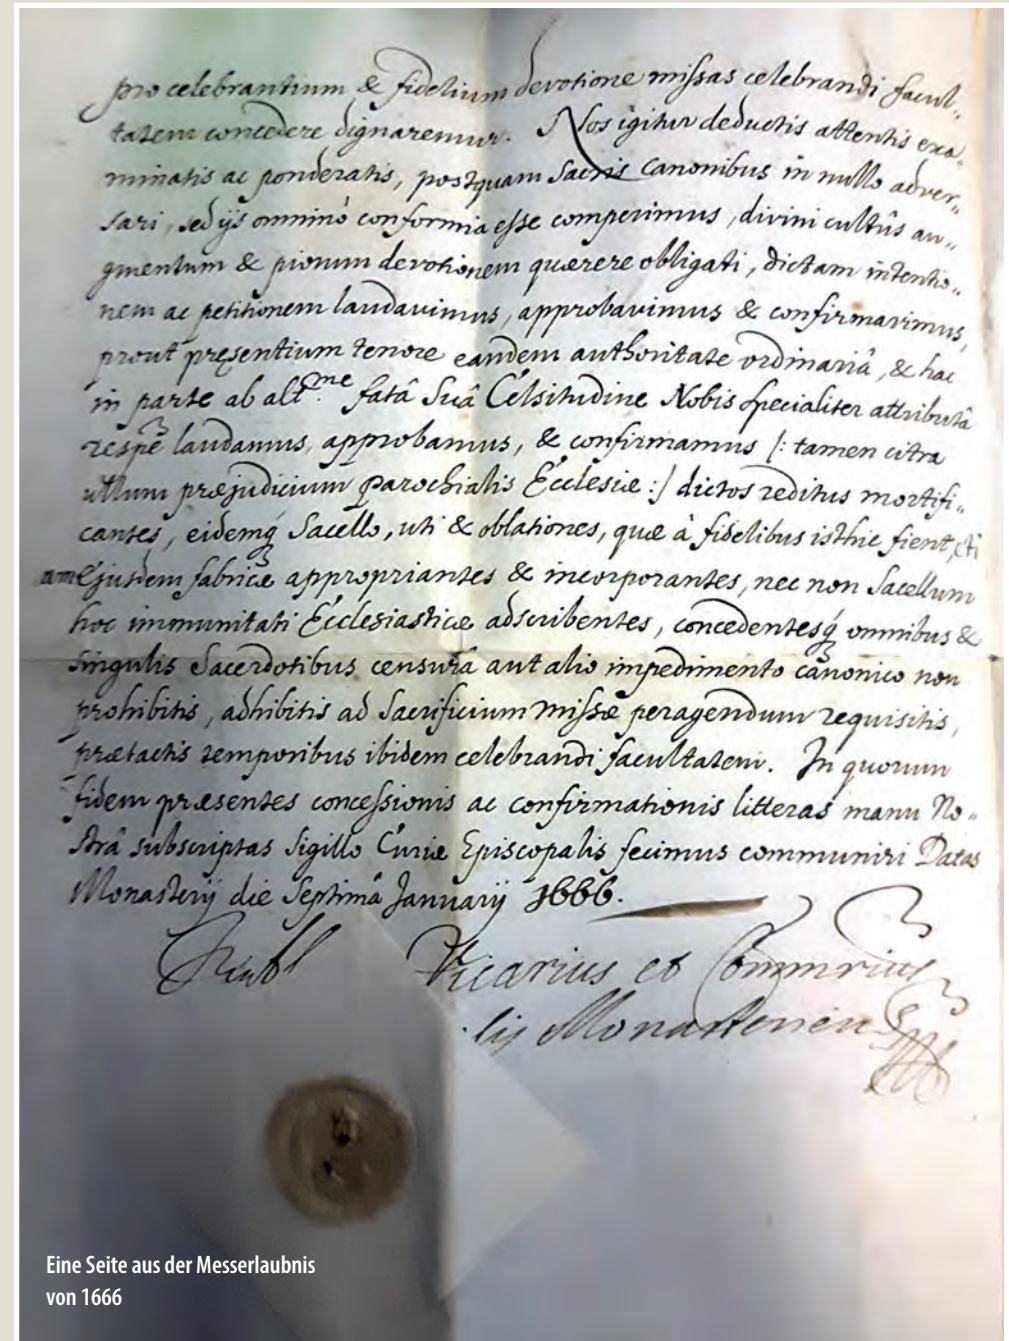 pro celebrantium & fidelium devotione missas celebrandi facul„
tatem concedere dignaremur. Nos igitur deductis attentis exa„
minatis ac ponderatis, postquam Sacris Canonibus in nullo adver„
sari, sed ijs omninò conformia esse comperimus, divini cultûs au„
gmentum & piorum devotionem quærere obligati, dictam intentio„
nem ac petitionem laudavimus, approbavimus & confirmavimus,
prout præsentium tenore eandem authoritate ordinariâ, & hac
in parte ab alt.me fatâ Suâ Celsitudine Nobis specialiter attributâ
respe laudamus, approbamus, & confirmamus /: tamen citra
ullum præjudicium Parochialis Ecclesiæ :/ dictos reditus mortifi„
cantes, eidemq́ Sacello, uti & oblationes, quæ à fidelibus isthic fient, eti
am Ejusdem fabricæ appropriantes & incorporantes, nec non Sacellum
hoc immunitati Ecclesiasticæ adscribentes, concedentesq́ omnibus &
singulis Sacerdotibus censurâ aut alio impedimento canonico non
prohibitis, adhibitis ad Sacrificium Missæ peragendum requisitis,
prætactis temporibus ibidem celebrandi facultatem. In quorum
fidem præsentes concessionis ac confirmationis litteras manu No„
strâ subscriptas sigillo Curiæ Episcopalis fecimus communiri Datas
Monasterij die Septimâ Januarij 1666.
Vicarius et
Eine Seite aus der Messerlaubnis
von 1666